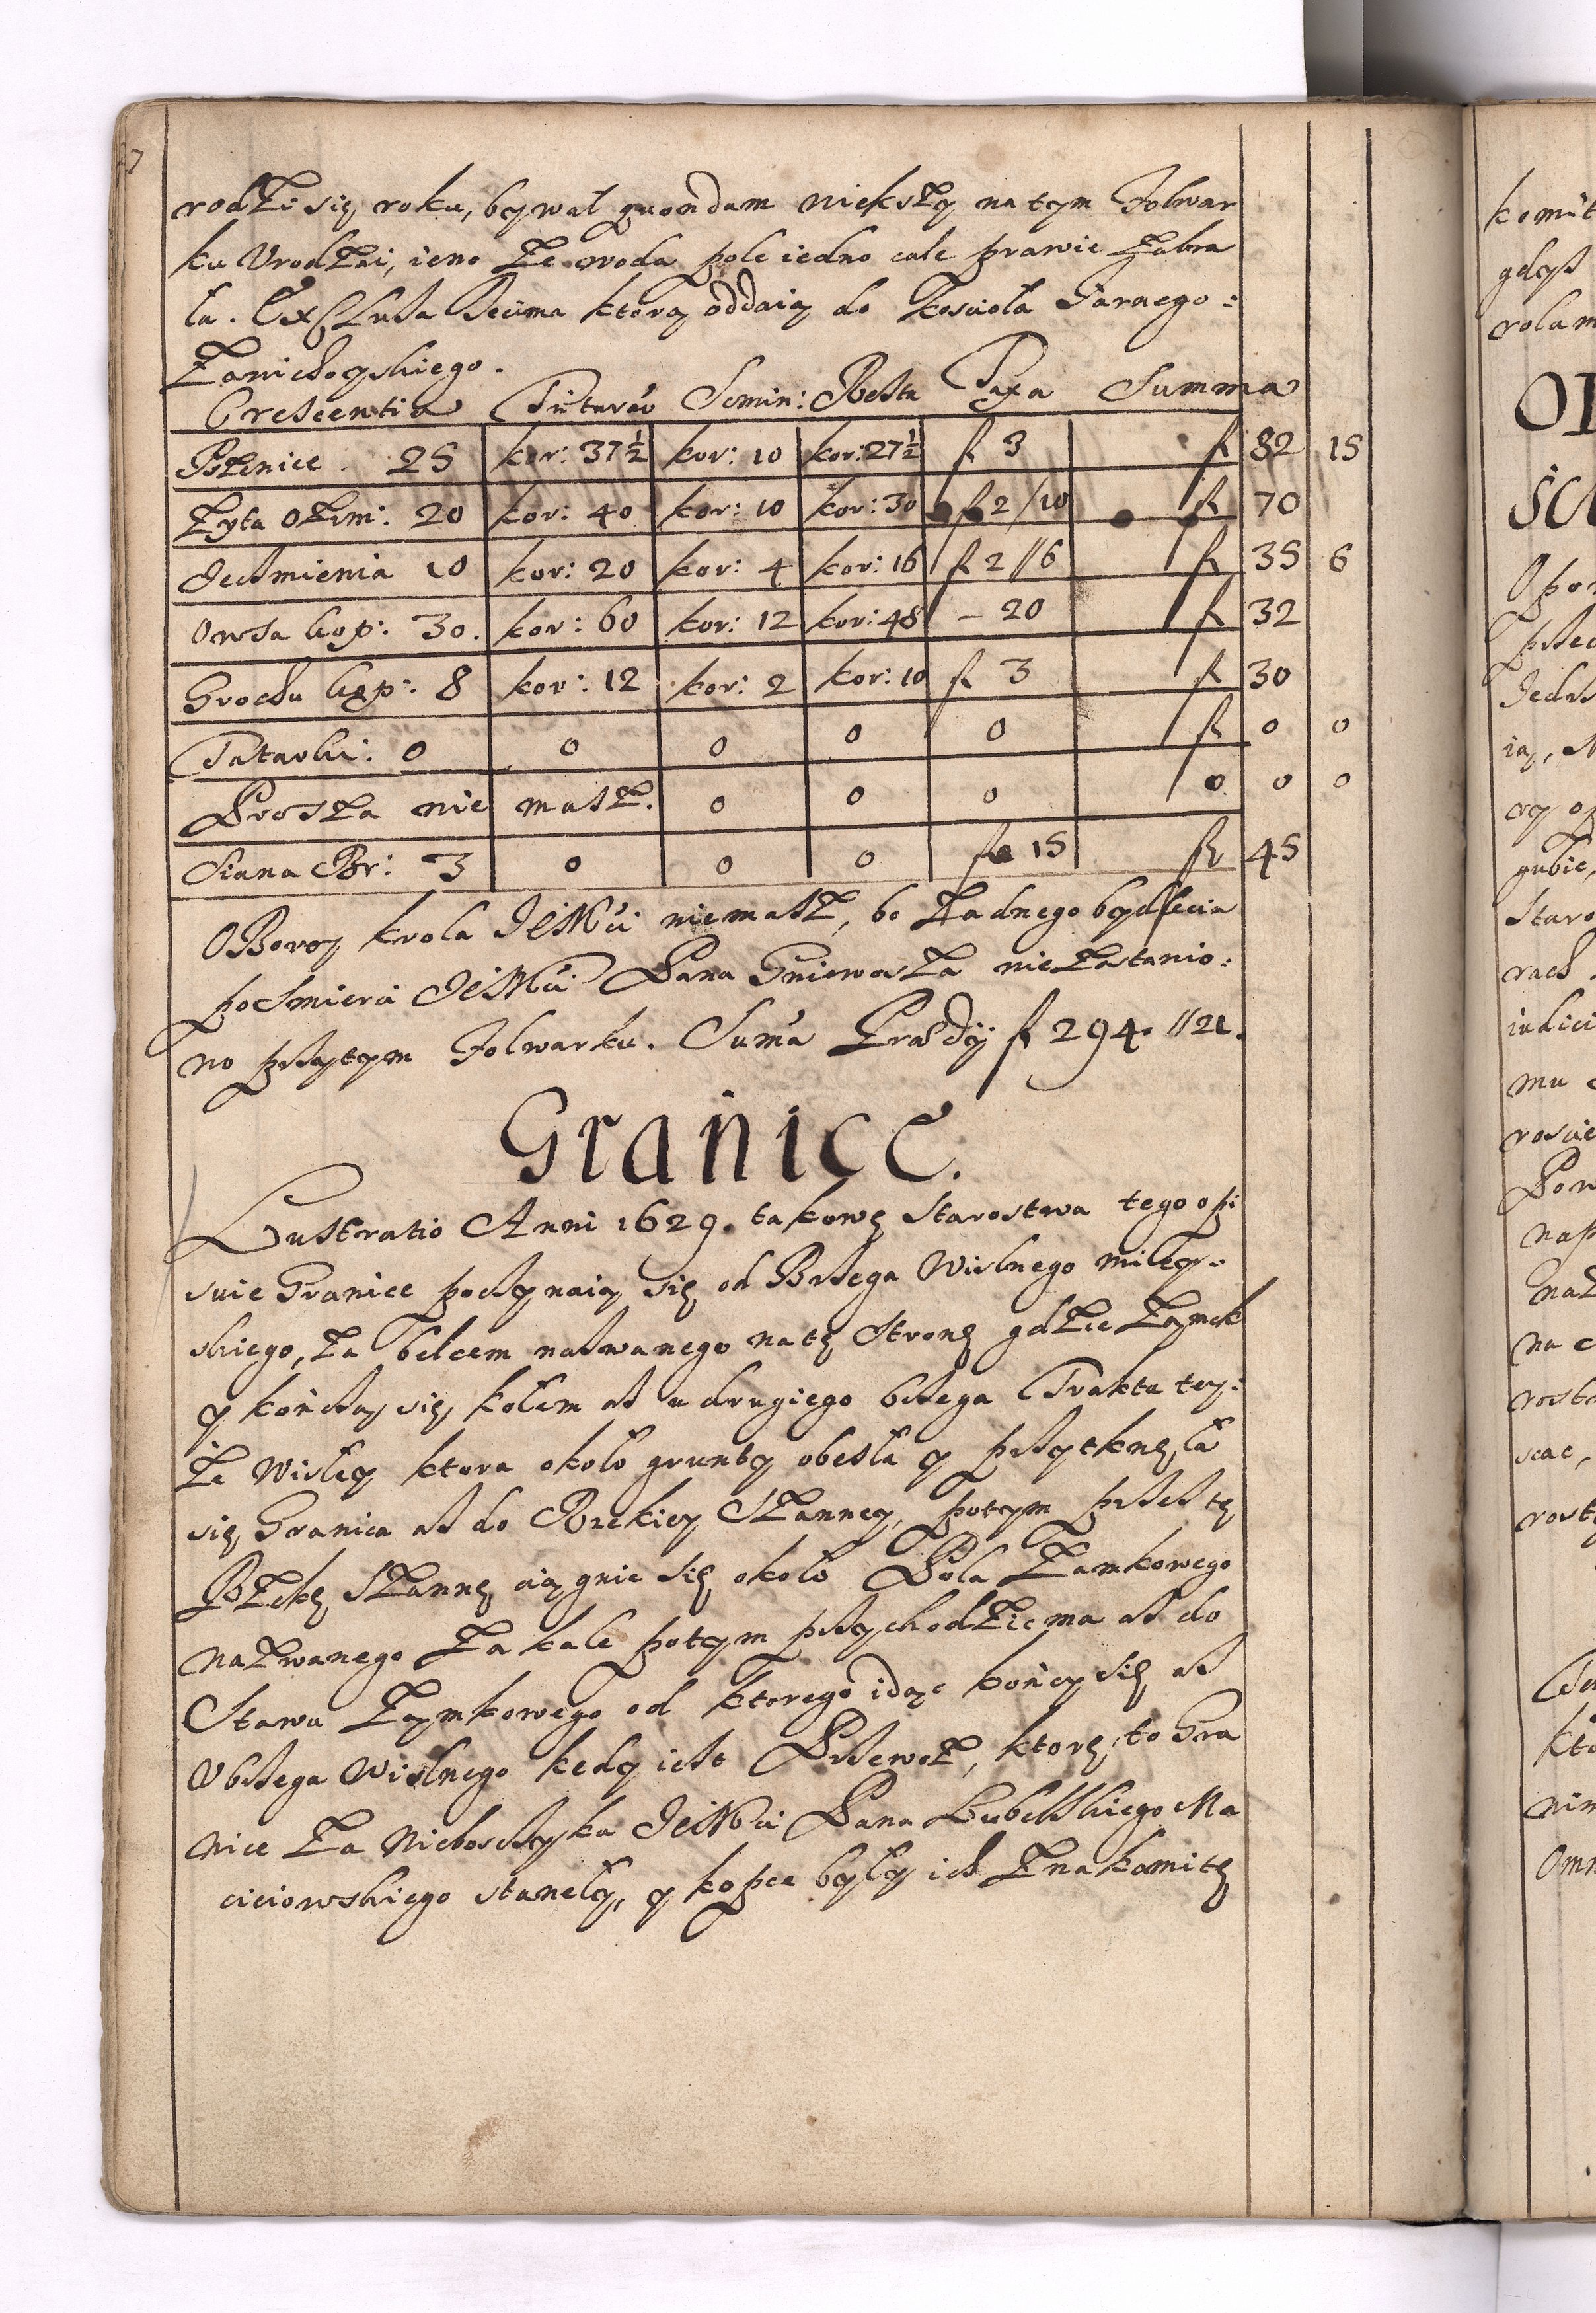 rodzi się roku, bywał quondam niekszy na tym Folwar
ku Vrodzai, ieno ze woda pole iedno cale prawie zabra
ła. Exczlusa Decima ktorą oddaią do kosciola Farnego:
Zanichoyskiego.
Crescentia Triturão Semin: Resta Taxa Summa
Pszenice. 25 kor: 37½ kor: 10 kor: 27½ fl 3 fl 82 15
Zyta ozim: 20 kor: 40 kor: 10 kor: 30 fl 2/10 fl 70
Jeczmienia 10 kor: 20 kor: 4 kor: 16 fl 2//6 fl 35 6
Owsa kop: 30. kor: 60 kor: 12 kor: 48 – 20 fl 32
Grochu kop: 8 kor: 12 kor: 2 kor: 10 fl 3 fl 30
Tatarki: 0 0 0 0 0 fl 0 0
Prosza nie masz. 0 0 0 0 0 0
Siana Br: 3 0 0 0 fl 15 fl 45
OBory krola JeMći niemasz, bo zadnego bydlecia
po smierci JeMći Pana Gniewosza nie zastanio:
no przytym Folwarku. Suma Prasdij fl 294. //21.
Granice.
Lustratio Anni 1629. takowę Starostwa tego opi
suie Granice poczynaią się od Brzega Wislnego
skiego, za belcem nazwanego na tę stronę gdzie Zamek
y kończą się kołem asz u drugiego brzega Trakta tey:
ze Wisłey ktora około grunty obeszła y przytknęła
się Granica asz do Rzekiey Szanney, potym przesz tę
Rzekę Szannę ciągnie się około Pola Zamkowego
nazwanego Zakale potym przychodzic ma asz do
Stawu Zamkowego od ktorego idąc kończy się asz
V brzega Wislnego kędy iest Przewoz, ktorę to Gra
nice za Nieboszczyka JeMći Pana Lubelskiego Ma
cieiowskiego stanęły, y kopce były ich znakomitę